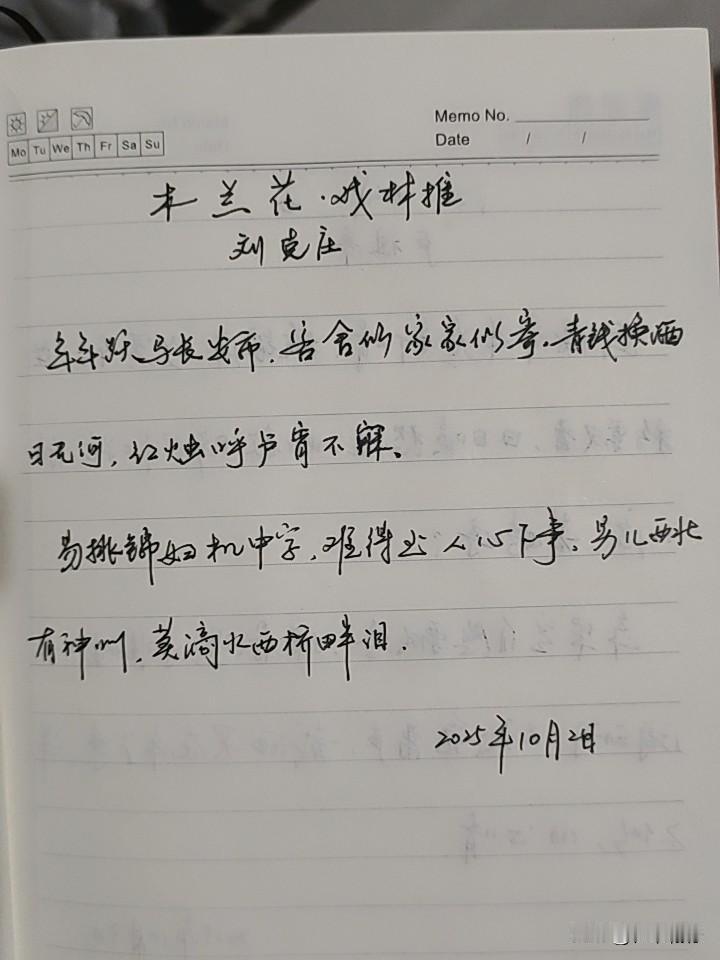 Memo No.
Mo Tu We Th Fr Sa Su
Date / /
木兰花·戏林推
刘克庄
年年跃马长安市，客舍似家家似寄。青钱换酒
日无何，红烛呼卢宵不寐。
易挑锦妇机中字，难得玉人心下事。男儿西北
有神州，莫滴水西桥畔泪。
2025年10月2日